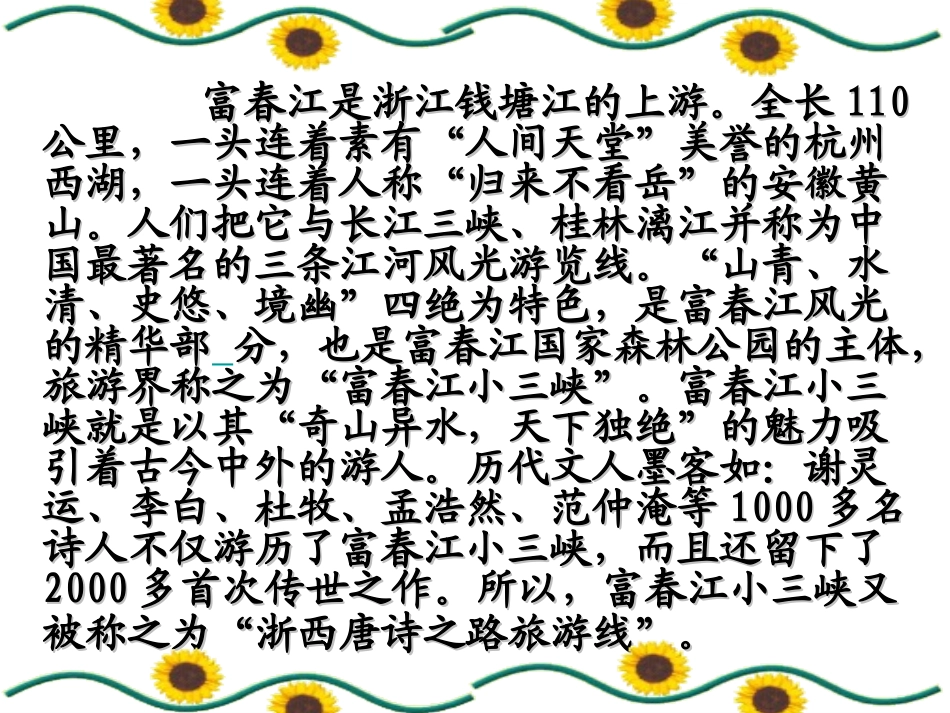 富春江是浙江钱塘江的上游。全长 110
公里，一头连着素有“人间天堂”美誉的杭州
西湖，一头连着人称“归来不看岳”的安徽黄
山。人们把它与长江三峡、桂林漓江并称为中
国最著名的三条江河风光游览线。“山青、水
清、史悠、境幽”四绝为特色，是富春江风光
的精华部_分，也是富春江国家森林公园的主体，
旅游界称之为“富春江小三峡”。富春江小三
峡就是以其“奇山异水，天下独绝”的魅力吸
引着古今中外的游人。历代文人墨客如：谢灵
运、李白、杜牧、孟浩然、范仲淹等 1000 多名
诗人不仅游历了富春江小三峡，而且还留下了
2000 多首次传世之作。所以，富春江小三峡又
被称之为“浙西唐诗之路旅游线”。